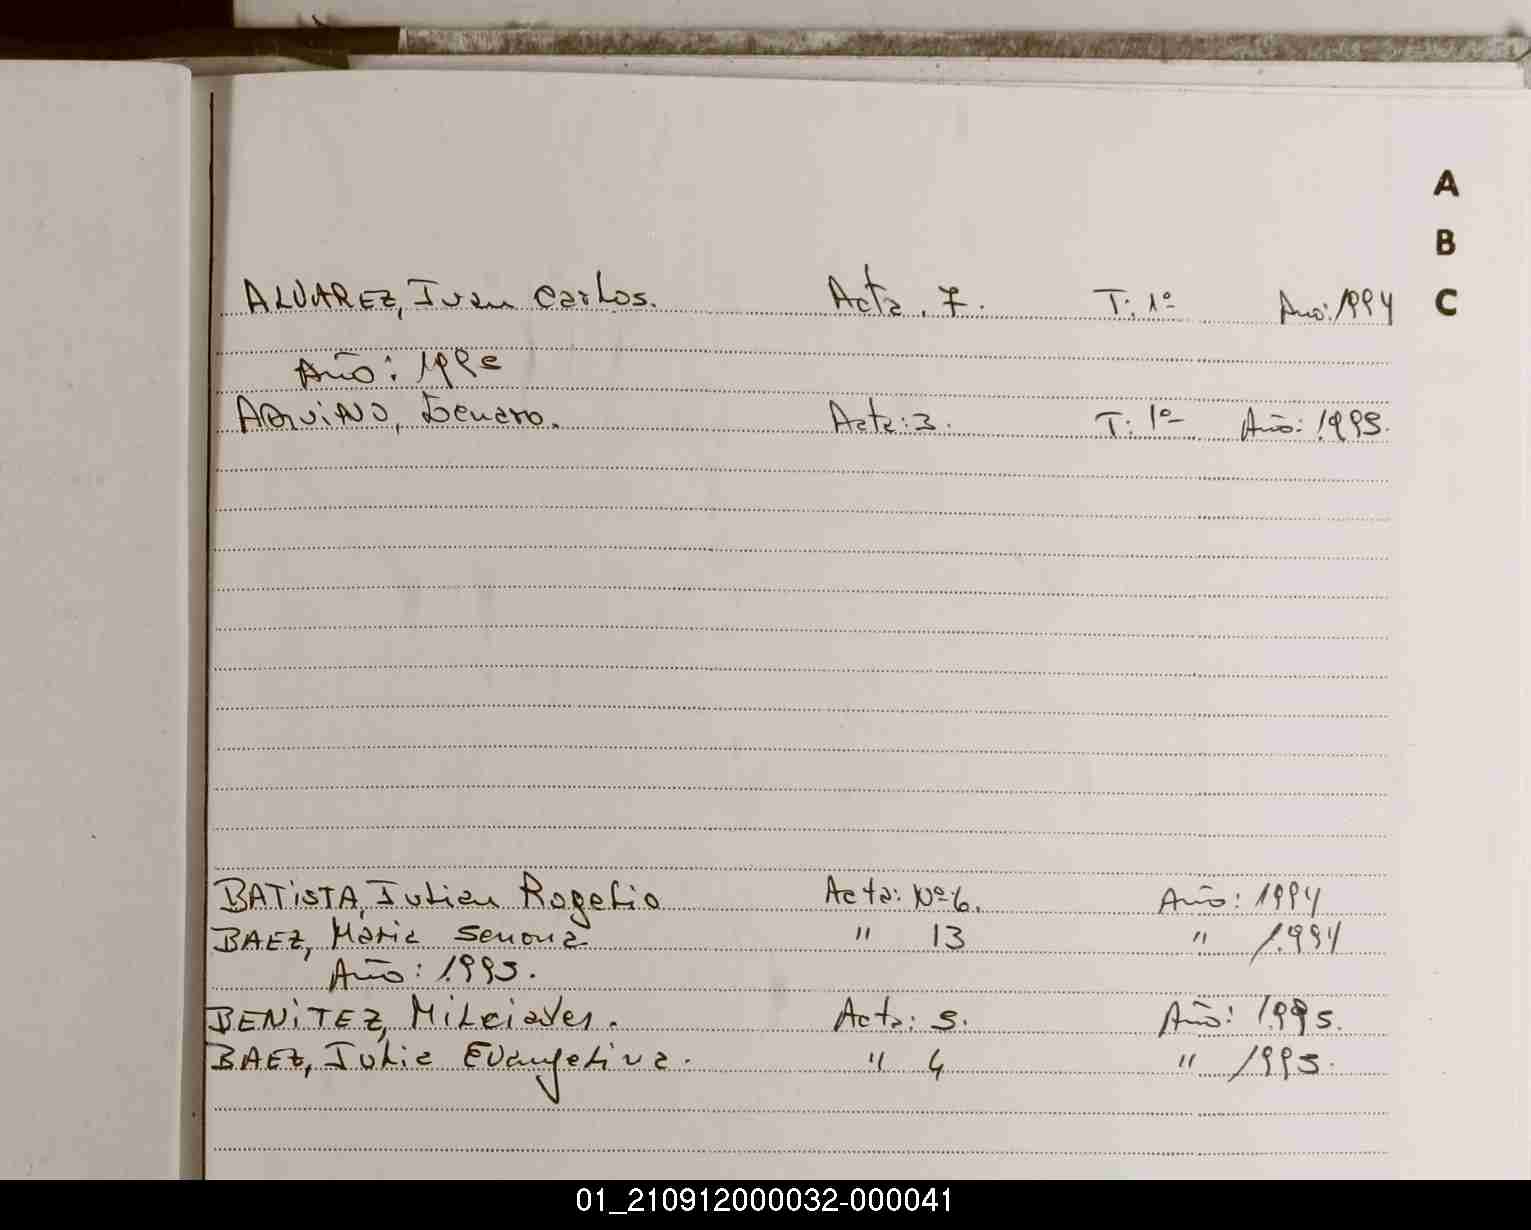 A
B
C
ALVAREZ, Juan Carlos. Acta. 7. T: 1º Año: 1994
Año: 199
AQUINO, Genaro. Acta: 3. T: 1º Año: 1995.
BATISTA, Julian Rogelio Acta: Nº 6. Año: 1994
BAEZ, Maria Senona " 13 " 1.994
Año: 1.995.
BENITEZ, Milciades. Acta: 5. Año: 1995.
BAEZ, Julia Evangelina. " 4 " 1995.
01_210912000032-000041